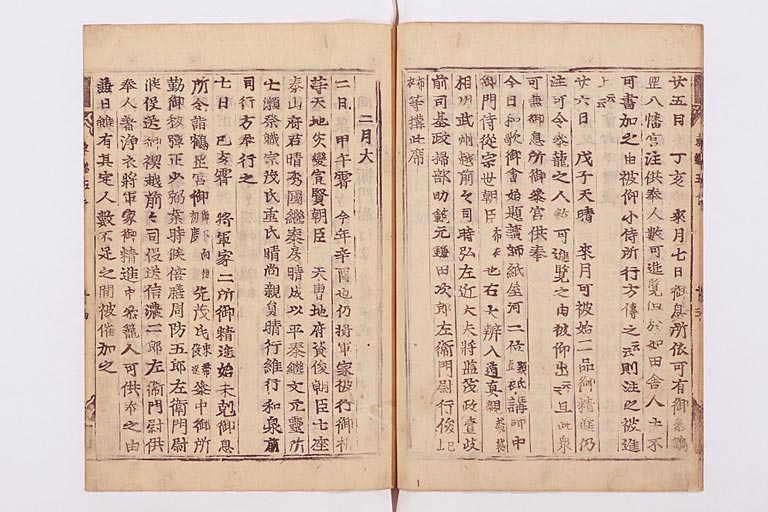 廿五日 丁亥 来月七日御息所依可有御参鶴
罡八幡宮注供奉人數可進覧 如田舎人土不
可書加之由被仰小侍所行方傳之云云則注之被進
上云云
廿六日 戊子天晴 来月可被始二品御精進仍
注可令参籠之人 可進覧之由被仰出云云且此衆
可兼御息所御参宮供奉
今日和歌御會始題讀師紙屋河二位顕氏講師中
御門侍従宗世朝臣布衣也右大辨入道真観
相州武州越前々司時弘左近大夫将監茂政壹岐
前司基政掃部助範元鎌田次郎左衛門尉行俊已上
布衣等搆此席
二月大
二日 甲午霽 今年辛酉也仍将軍家被行御祈
等天地災變宣賢朝臣 天曹地府資俊朝臣七座
泰山府君晴秀國継泰房晴成以平泰継文元靈所
七瀬祭職宗茂氏重氏晴尚親貞晴行維行和泉前
司行方奉行之
七日 己亥霽 将軍家二所御精進始未剋御息
所令詣鶴罡宮御 先茂氏束帯参中御所
勤御祓弾正少弼業時候倍膳周防五郎左衛門尉
候役送御禊越前々司役送信濃二郎左衛門尉供
奉人著浄衣将軍家御精進中参籠人可供奉之由
無日雖有其定人數不足之間被催加之